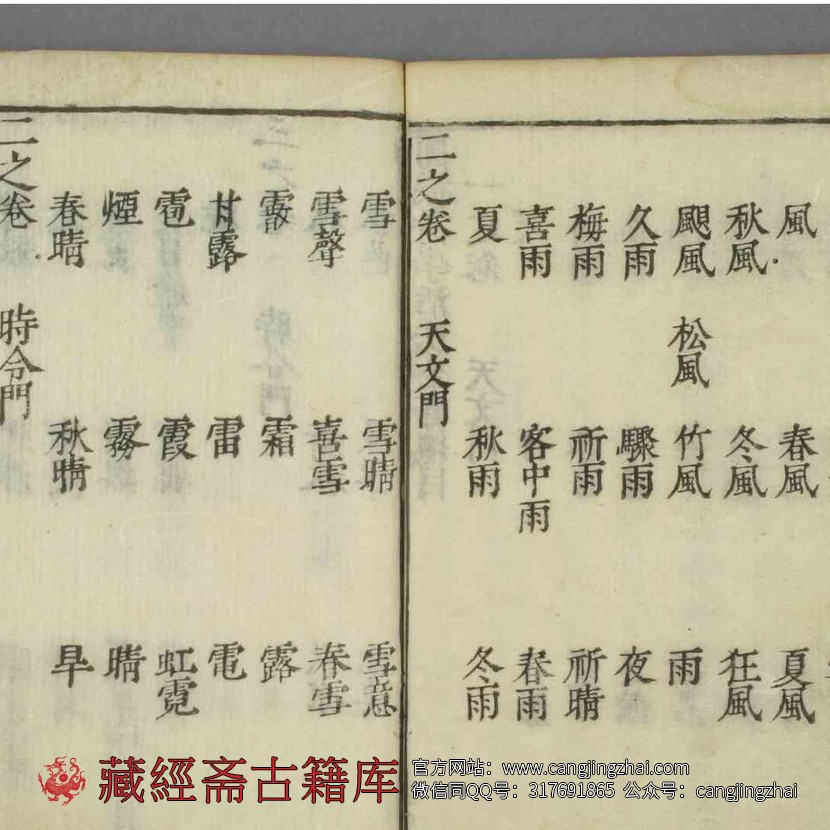 風 春風 夏風
秋風 冬風 狂風
颶風 松風 竹風 雨
久雨 驟雨 夜
梅雨 祈雨 祈晴
喜雨 客中雨 春雨
夏 秋雨 冬雨
二之卷 天文門
雪 雪晴 雪意
雪聲 喜雪 春雪
霰 霜 露
甘露 雷 電
雹 霞 虹霓
煙 霧 晴
春晴 秋晴 旱
二之卷 時令門
藏經斋古籍库
官方网站：www.cangjingzhai.com
微信同QQ号：317691865 公众号：cangjingzhai